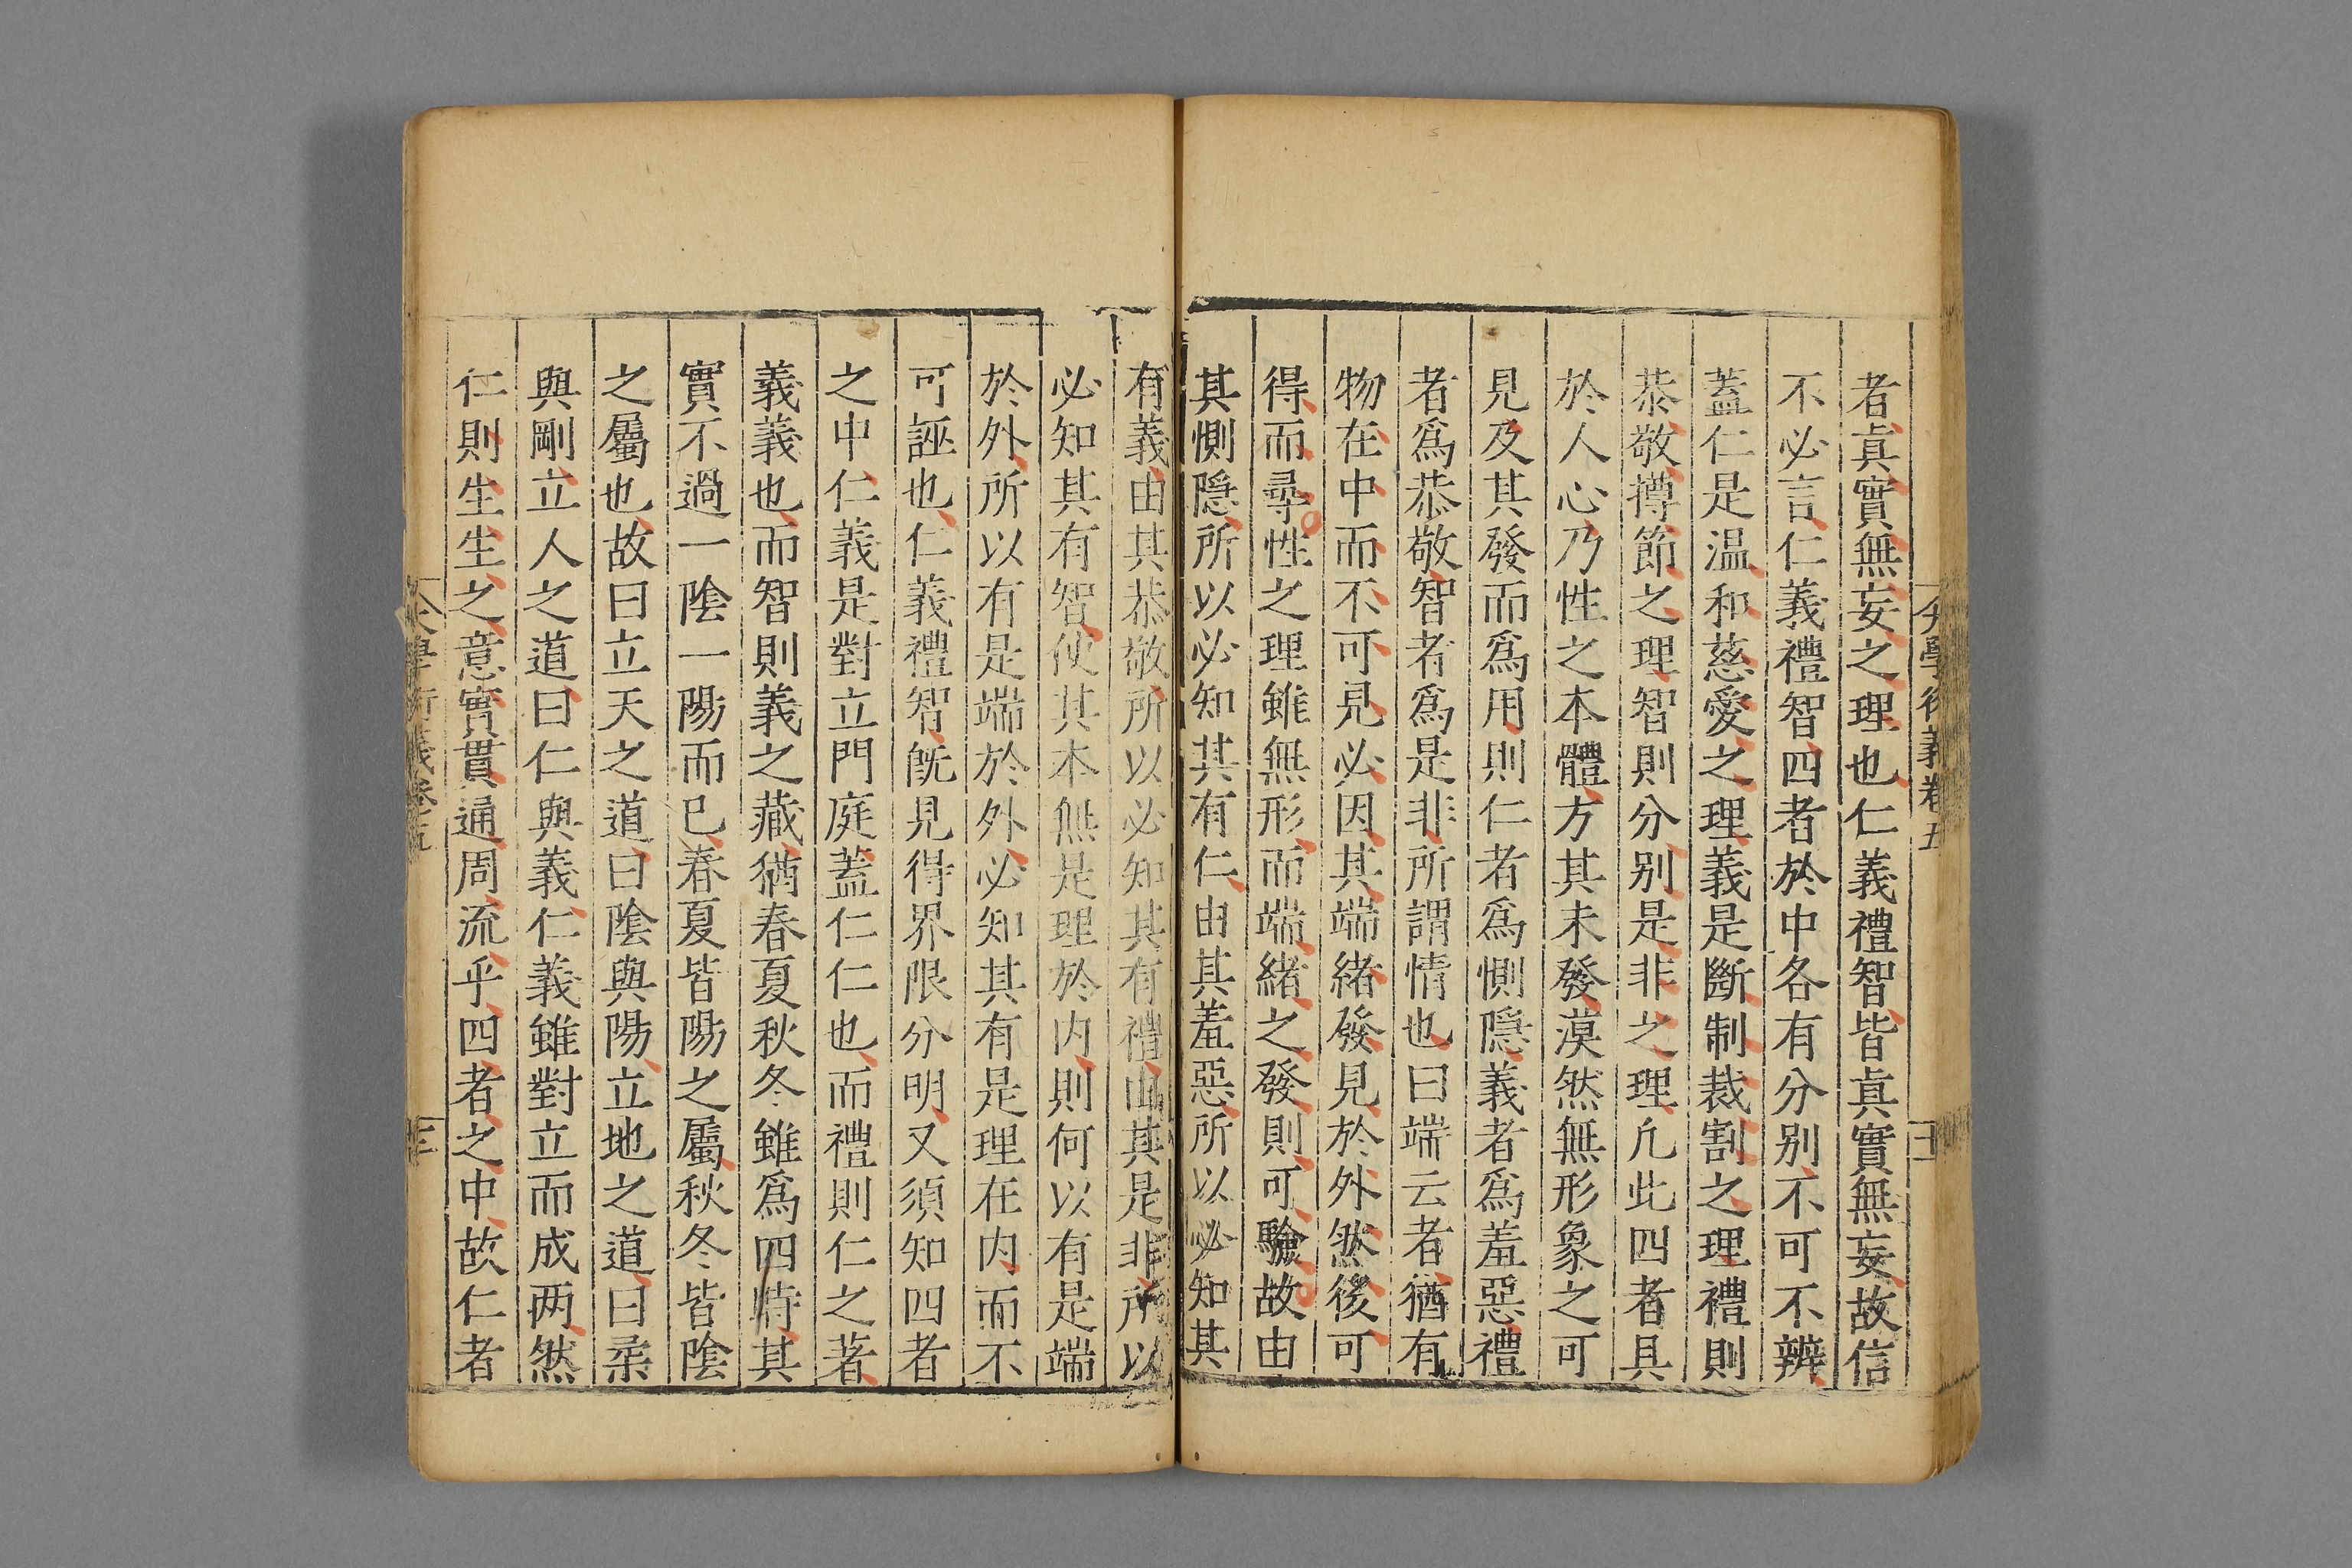 大學衍義卷五
十一
者真實無妄之理也仁義禮智皆真實無妄故信
不必言仁義禮智四者於中各有分别不可不辨
蓋仁是温和慈愛之理義是斷制裁割之理禮則
恭敬撙節之理智則分别是非之理凡此四者具
於人心乃性之本體方其未發漠然無形象之可
見及其發而爲用則仁者爲惻隠義者爲羞惡禮
者爲恭敬智者爲是非所謂情也曰端云者猶有
物在中而不可見必因其端緒發見於外然後可
得而尋性之理雖無形而端緒之發則可驗故由
其惻隠所以必知其有仁由其羞惡所以必知其
有義由其恭敬所以必知其有禮由其是非所以
必知其有智使其本無是理於内則何以有是端
於外所以有是端於外必知其有是理在内而不
可誣也仁義禮智旣見得界限分明又須知四者
之中仁義是對立門庭蓋仁仁也而禮則仁之著
義義也而智則義之藏猶春夏秋冬雖爲四時其
實不過一陰一陽而已春夏皆陽之屬秋冬皆陰
之屬也故曰立天之道曰陰與陽立地之道曰柔
與剛立人之道曰仁與義仁義雖對立而成两然
仁則生生之意實貫通周流乎四者之中故仁者
大學衍義卷五